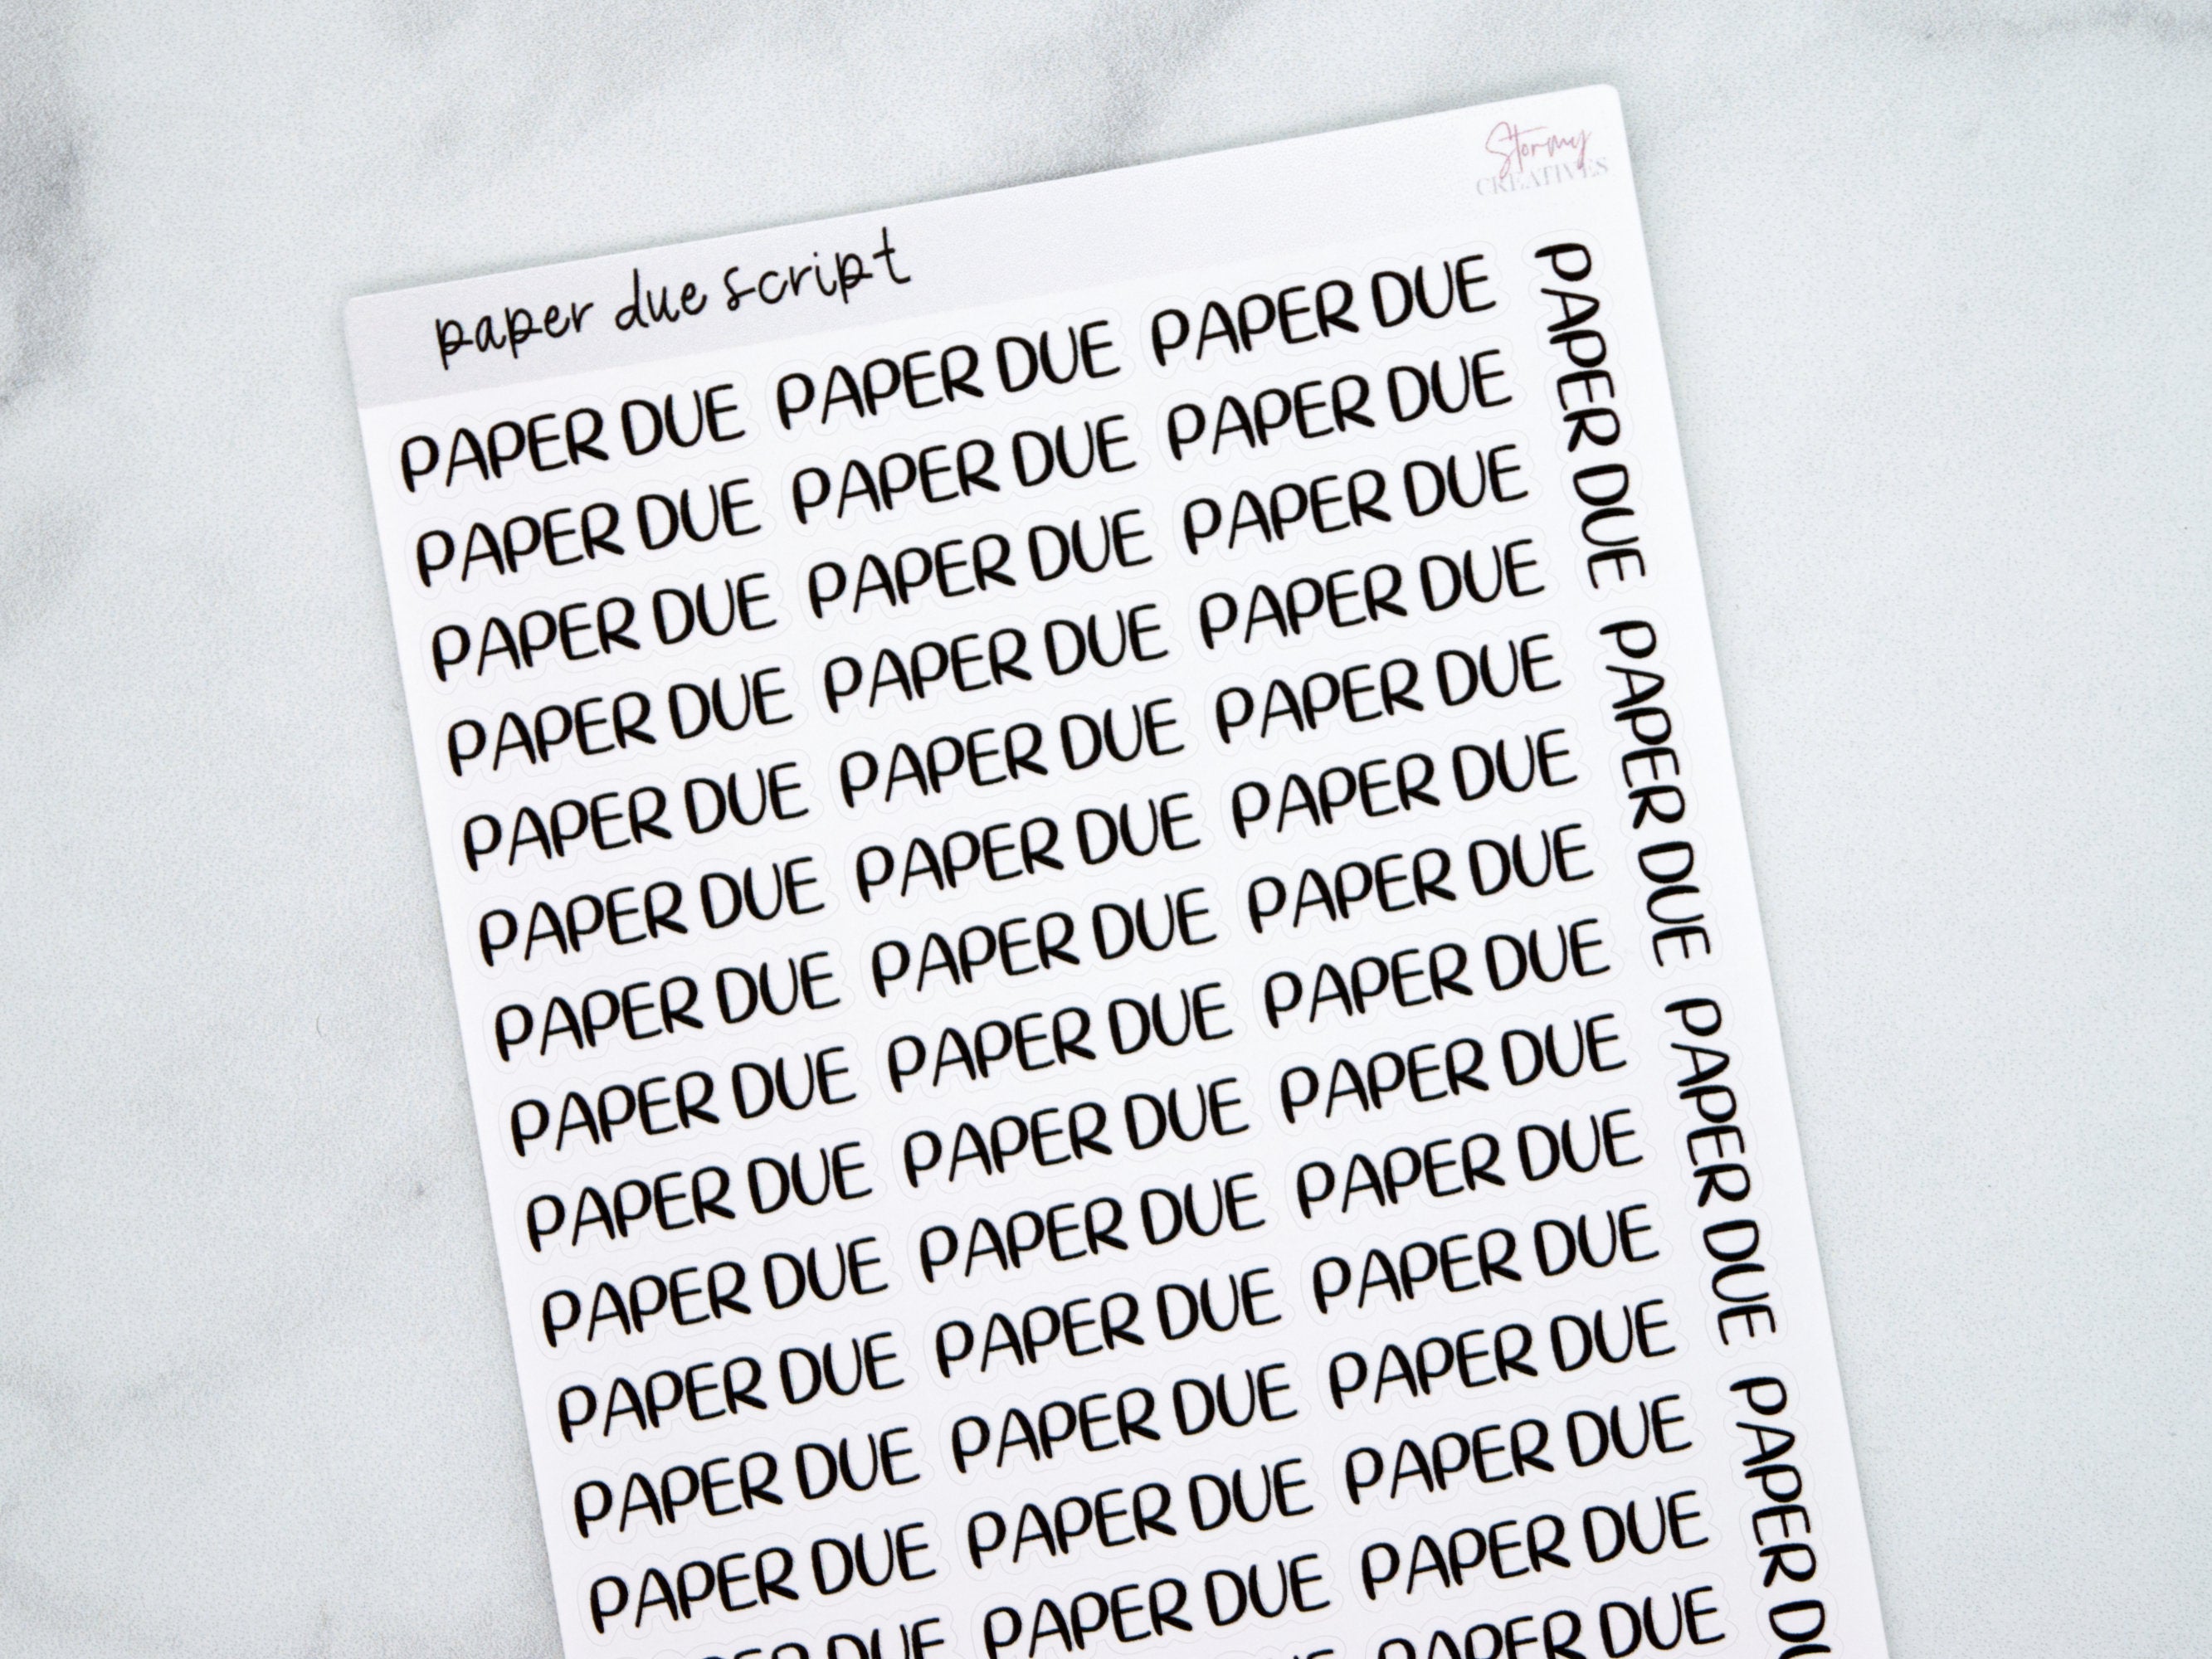 Stormy
CREATIVES
paper due script
PAPER DUE PAPER DUE PAPER DUE
PAPER DUE PAPER DUE PAPER DUE
PAPER DUE PAPER DUE PAPER DUE
PAPER DUE PAPER DUE PAPER DUE
PAPER DUE PAPER DUE PAPER DUE
PAPER DUE PAPER DUE PAPER DUE
PAPER DUE PAPER DUE PAPER DUE
PAPER DUE PAPER DUE PAPER DUE
PAPER DUE PAPER DUE PAPER DUE
PAPER DUE PAPER DUE PAPER DUE
PAPER DUE PAPER DUE PAPER DUE
PAPER DUE PAPER DUE PAPER DUE
PAPER DUE PAPER DUE PAPER DUE
DUE PAPER DUE PAPER DUE
PAPER DUE
PAPER DUE
PAPER DUE
PAPER DUE
PAPER DU